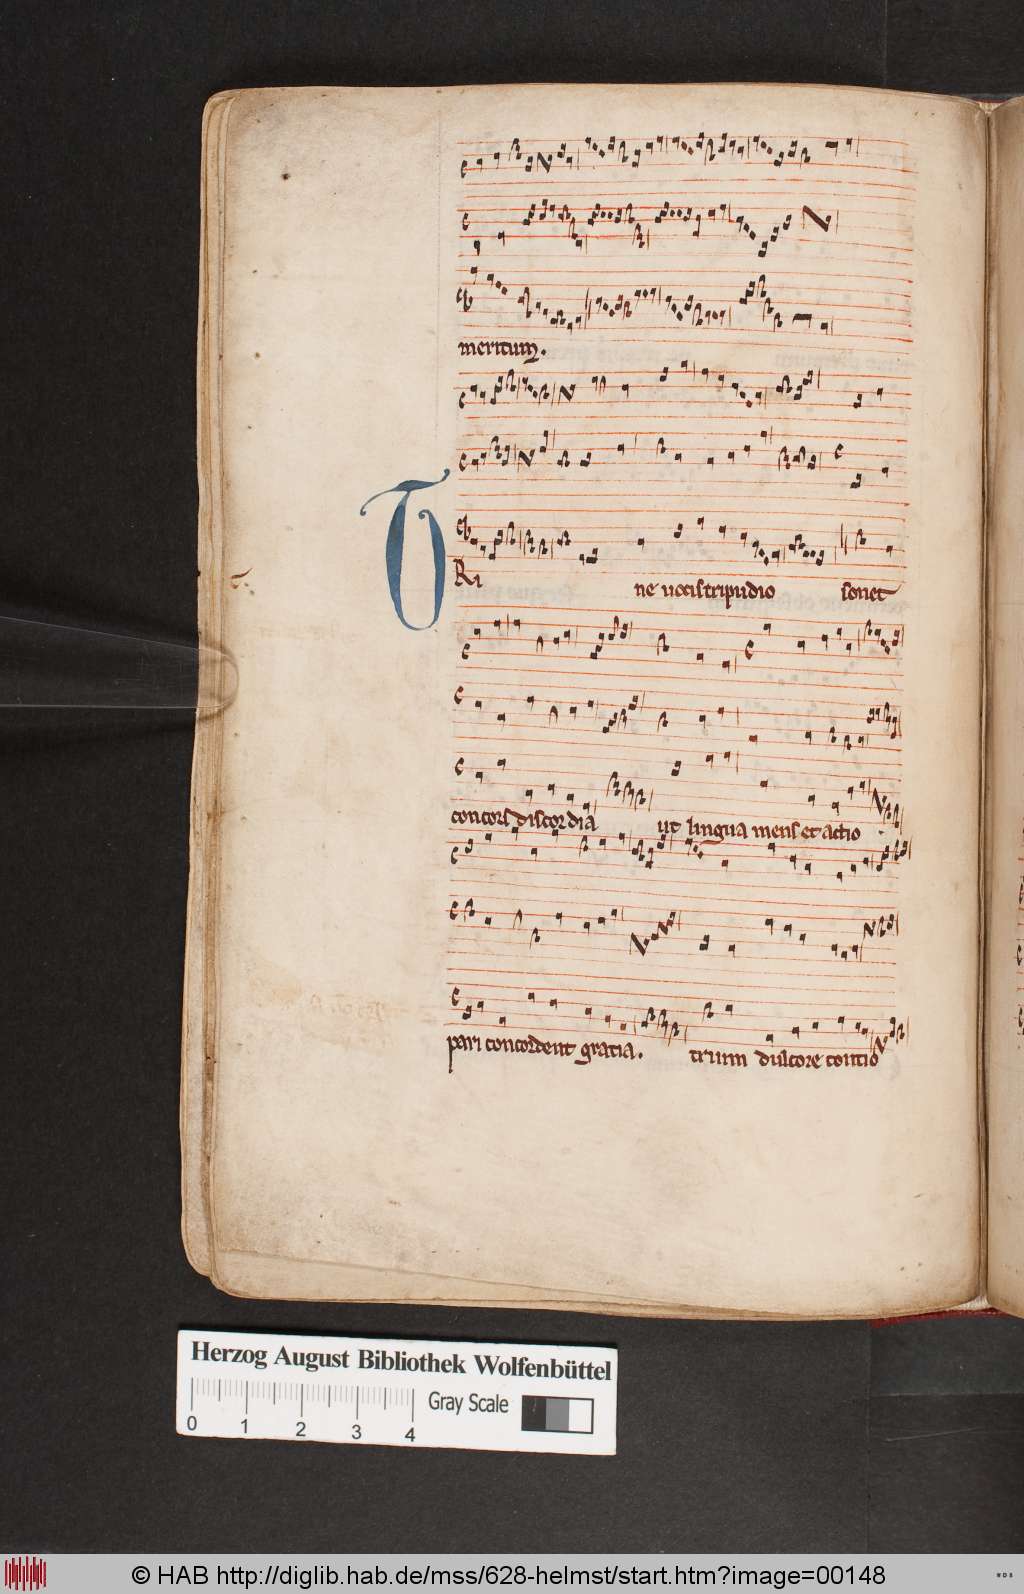 meritum.
TRi ne vocis tripudio sonet
concors discordia ut lingua mens et actio
pari concordent gratia. trium discore contio
Herzog August Bibliothek Wolfenbüttel
Gray Scale
0 1 2 3 4
© HAB http://diglib.hab.de/mss/628-helmst/start.htm?image=00148